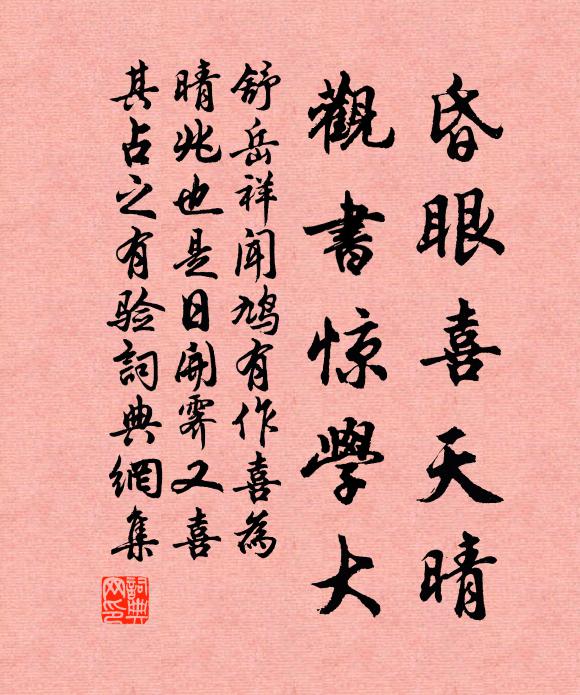 昏眼喜天晴
觀書惊學大
舒岳祥闻鳩有作喜為
晴兆也是日開霁又喜
其占之有验詞典網集
詞典
网印